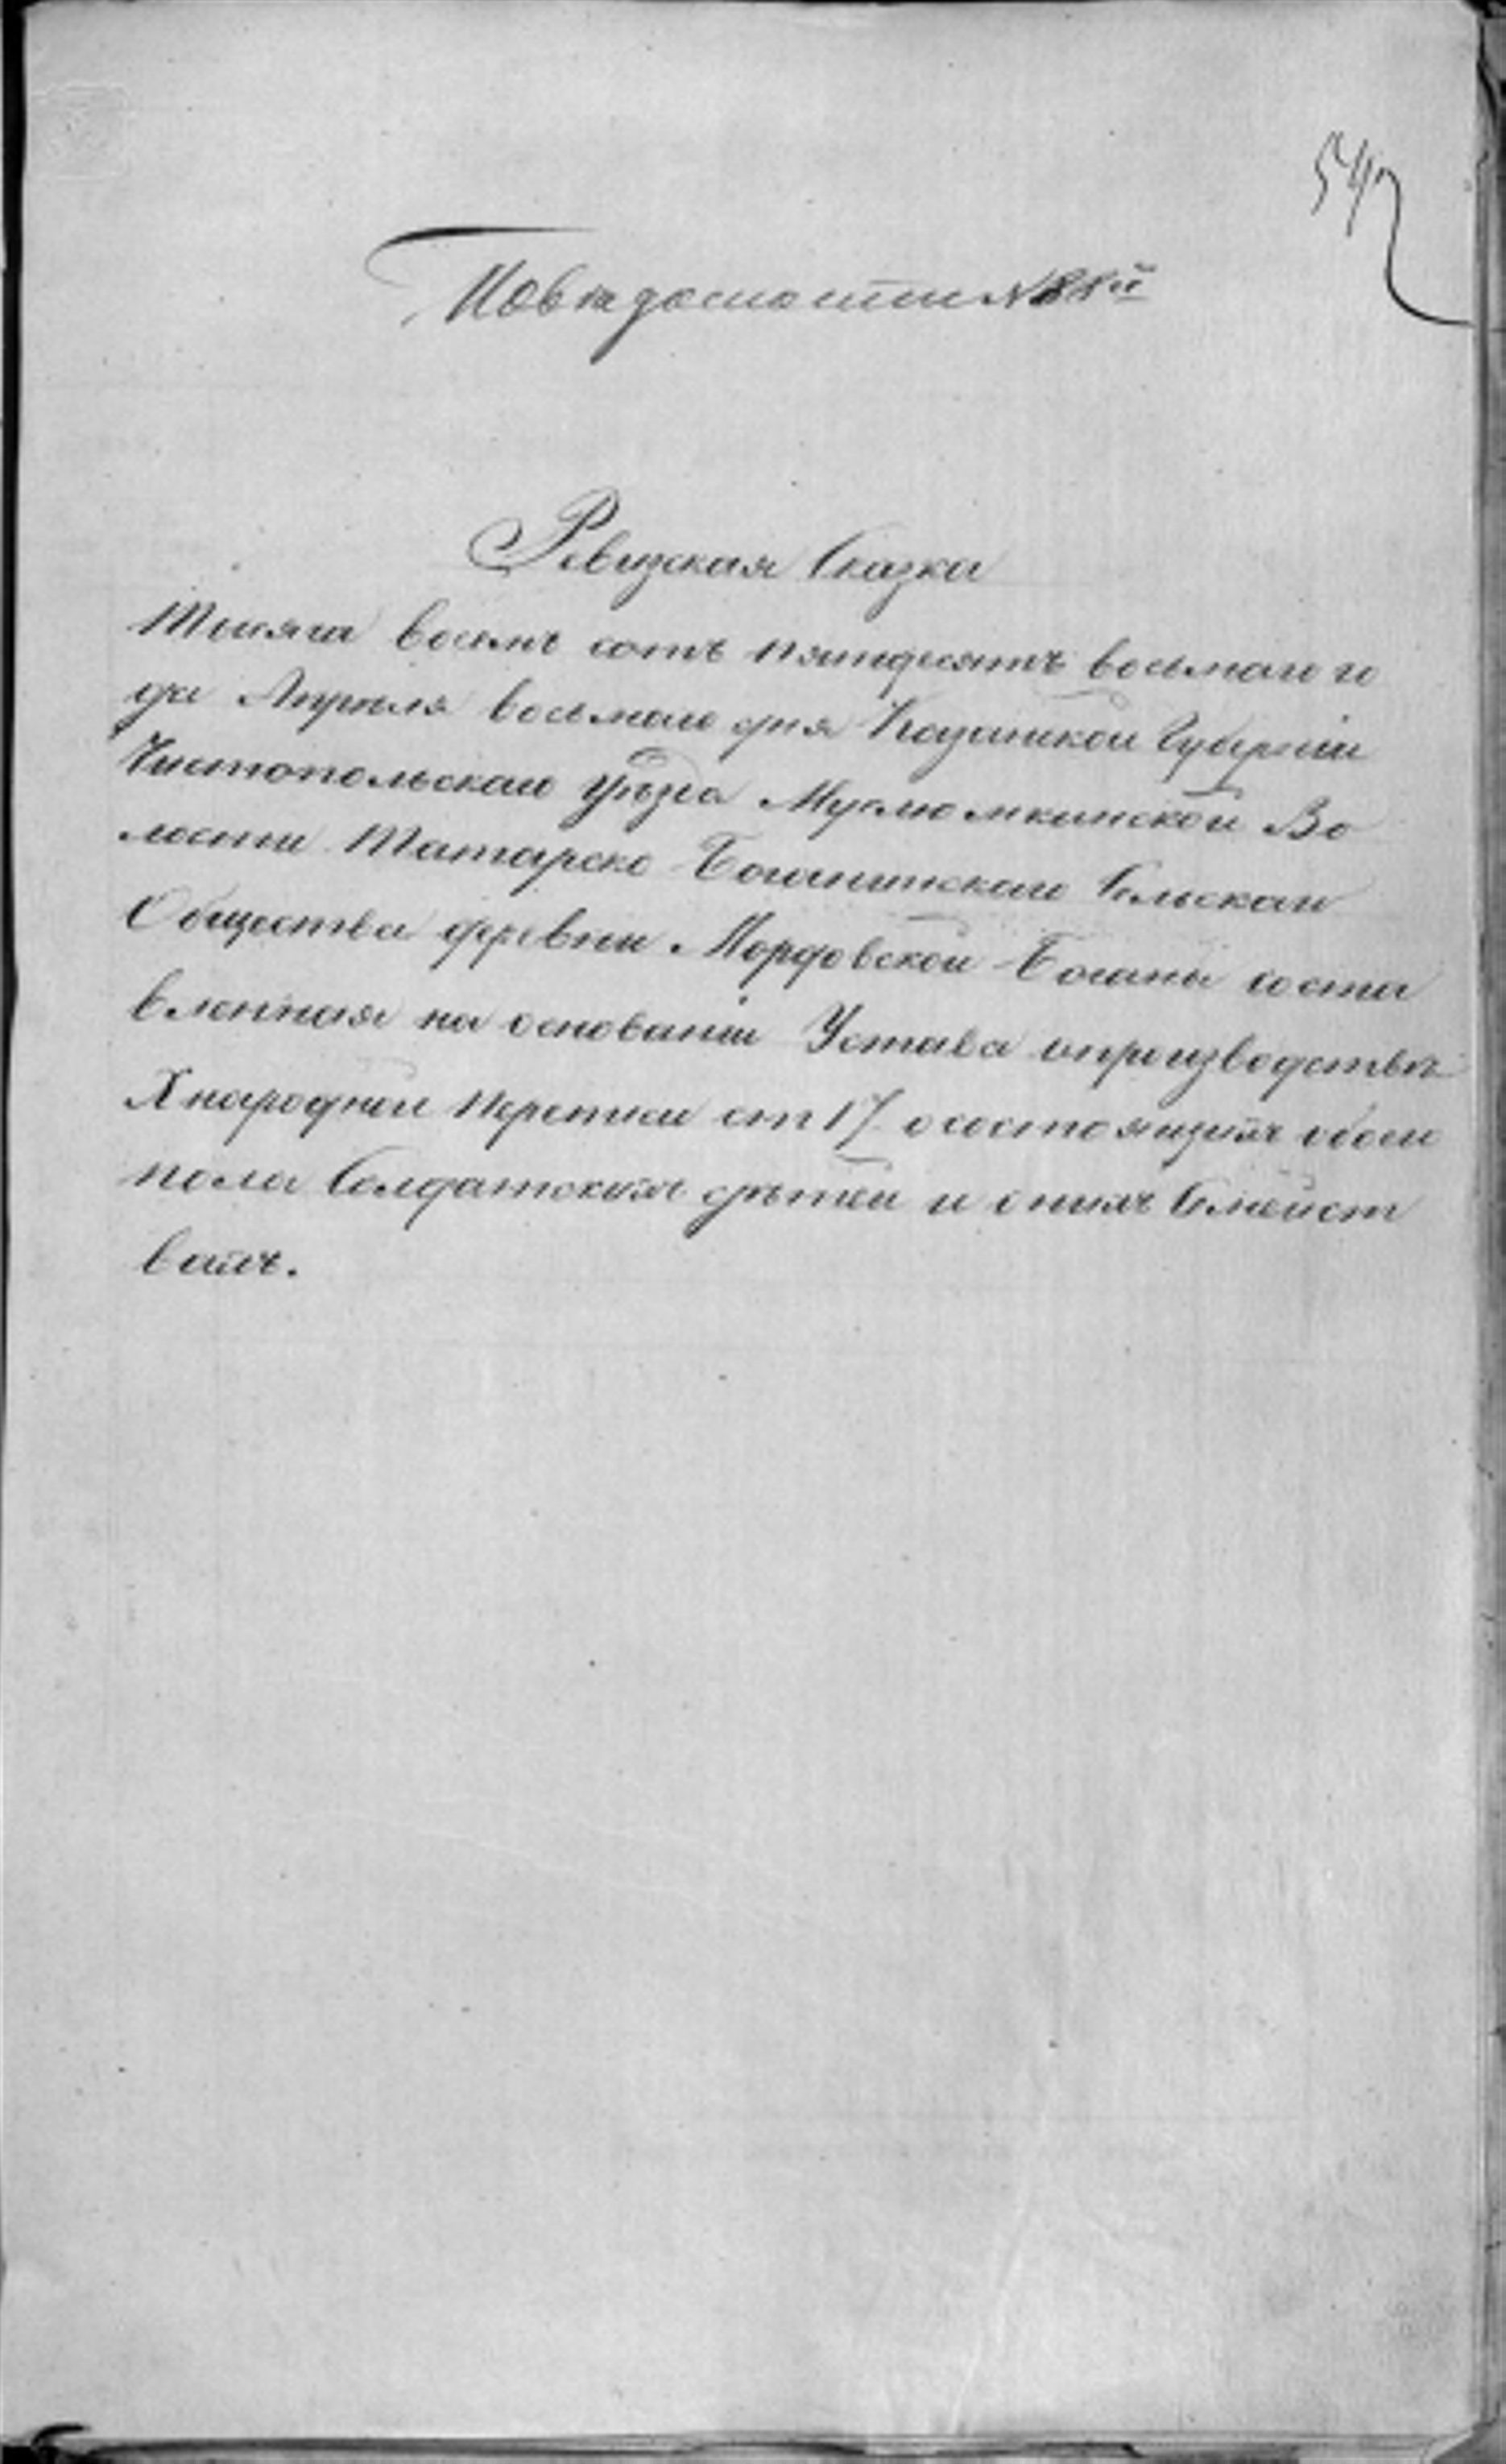 547
По ведомости №
Ревизская Сказка
Тысяча восемь сотъ пятидесятъ восьмаго го
да Апреля восьмаго дня Казанской Губерніи
Чистопольскаго уѣзда Муслюмкинской Во
лости Татарско Баганинскаго Сельскаго
Общества деревни Мордовской Баганы соста
вленная на основаніи Устава о производстве
X народной переписи ст 17 о состоящихъ обоего
пола Солдатскихъ детей и о ихъ Семейст
вахъ.